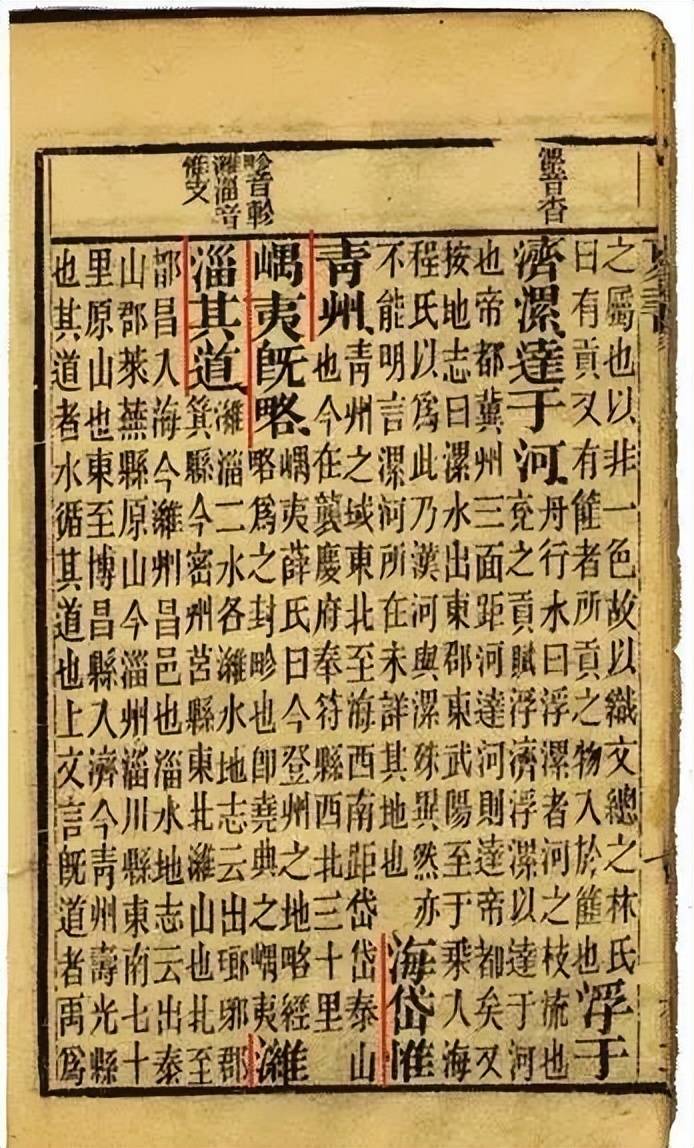 漯音沓
畛音軫
濰淄音
惟支
之屬也以非一色故以織文總之林氏
曰有貢又有篚者所貢之物入於篚也浮于
濟漯達于河舟行水曰浮漯者河之枝流也
兗之貢賦浮濟浮漯以達于河
也帝都冀州三面距河達河則達帝都矣又
按地志曰漯水出東郡東武陽至于乘入海
程氏以爲此乃漢河與漯殊異然亦
不能明言漯河所在未詳其地也海岱惟
青州青州之域東北至海西南距岱岱泰山
也今在襲慶府奉符縣西北三十里
嵎夷既略嵎夷薛氏曰今登州之地略經
略爲之封畛也卽堯典之嵎夷濰
淄其道濰淄二水各濰水地志云出瑯琊郡
箕縣今密州莒縣東北濰山也北至
都昌入海今濰州昌邑也淄水地志云出泰
山郡萊蕪縣原山今淄州淄川縣東南七十
里原山也東至博昌縣入濟今青州壽光縣
也其道者水循其道也上文言旣道者禹爲